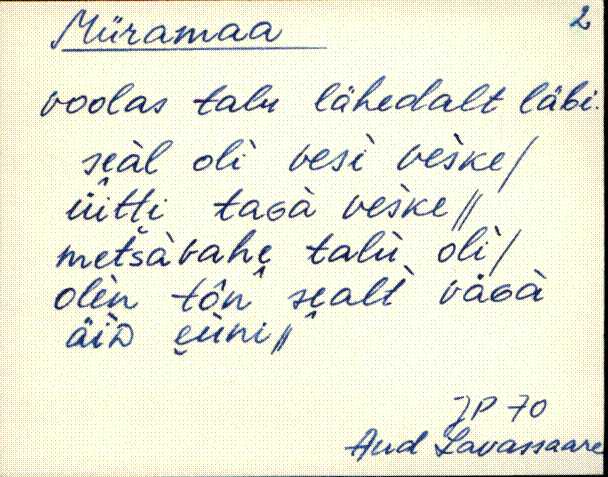 Müramaa
2
voolas talu lähedalt läbi.
seàl olì vesì vèske/
üìtti taGà vèske//
metsàvahe talù olì/
olèn tôn sealt väGà
äìD eùni//
JP 70
Aud Lavassaare